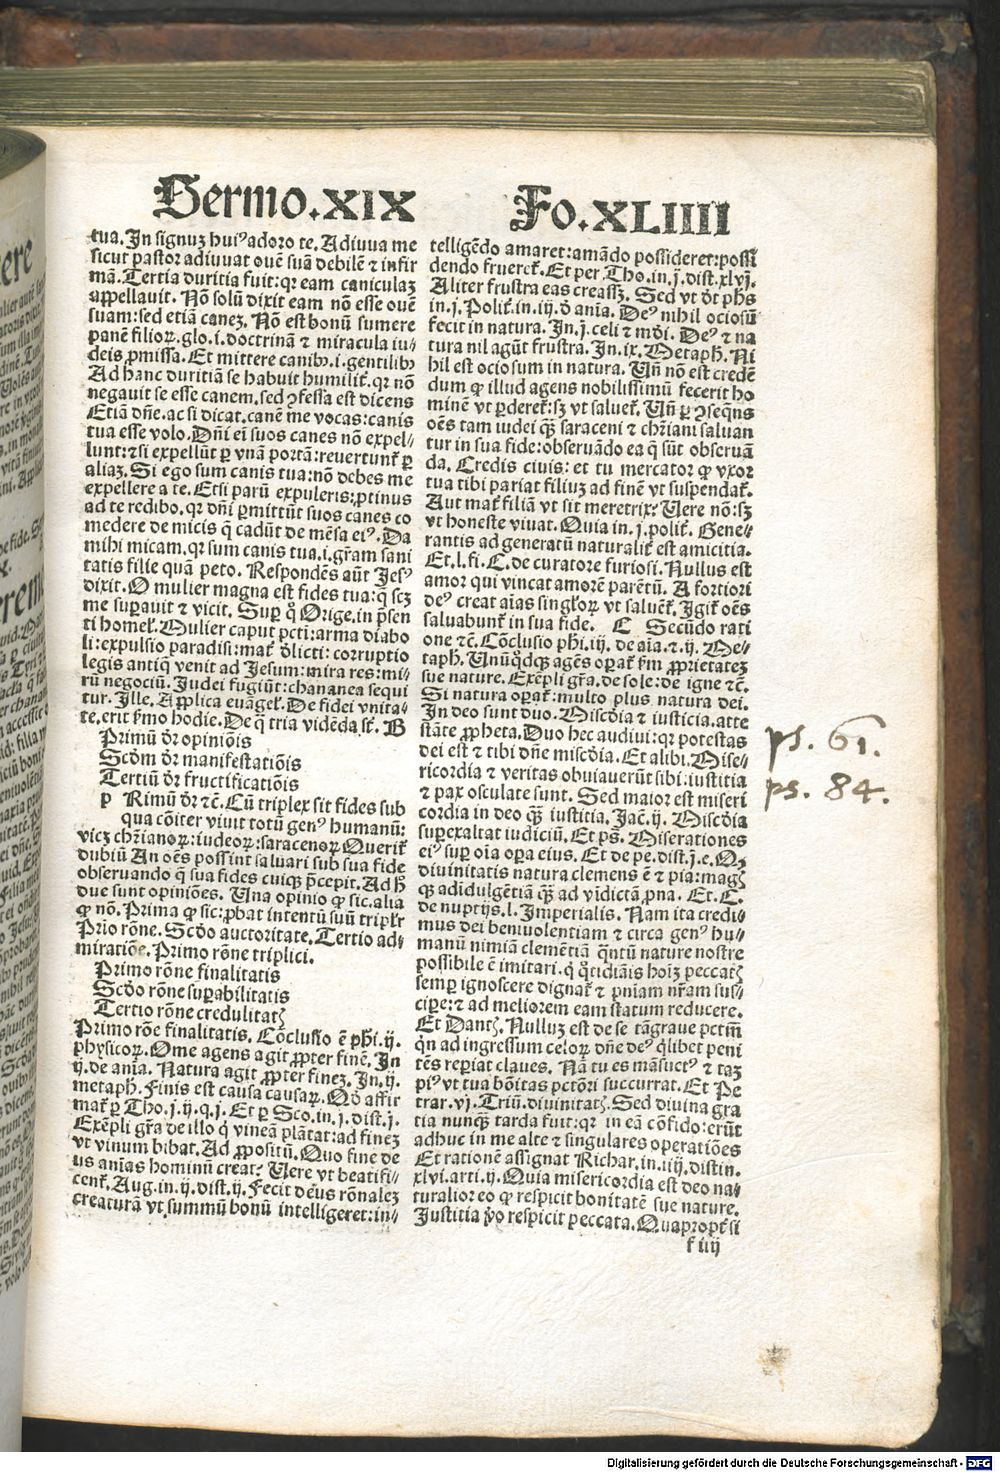 Sermo.XIX
Fo.XLIIII
tua. In signuz huiꝰ adoro te. Adiuua me
sicut pastor adiuuat ouē suā debilē ⁊ infir
mā. Tertia duritia fuit: qꝛ eam caniculaz
appellauit. Nō solū dixit eam nō esse ouē
suam: sed etiā canez. Nō est bonū sumere
panē filioꝝ. glo. i. doctrinā ⁊ miracula iu⸗
deis ꝓmissa. Et mittere canibꝫ .i. gentilibꝫ
Ad hanc duritiā se habuit humilit̉. qꝛ nō
negauit se esse canem, sed ꝯfessa est dicens
Etiā dn̄e. ac si dicat. canē me vocas: canis
tua esse volo. Dn̄i ei̅ suos canes nō expel⸗
lunt: ⁊ si expellūt ꝑ vnā portā: reuertunt̉ ꝑ
aliaz. Si ego sum canis tua: nō debes me
expellere a te. Etsi parū expuleris: ꝓtinus
ad te redibo. qꝛ dn̄i ꝑmittūt suos canes co
medere de micis q̄ cadūt de mēsa eiꝰ. Da
mihi micam, qꝛ sum canis tua .i. gr̄am sani
tatis filie quā peto. Respondēs aūt Jesꝰ
dixit. O mulier magna est fides tua: q̄ scꝫ
me suꝑauit ⁊ vicit. Suꝑ qͦ Orige. in p̄sen
ti homel̉. Mulier caput pctī: arma diabo
li: expulsio paradisi: mat̉ ꝺlicti: corruptio
legis antiq̄ venit ad Jesum: mira res: mi⸗
rū negociū. Judei fugiūt: chananea sequi
tur. Ille. Applica euāgel̉. De fidei vnita⸗
te. erit s̉mo hodie. De q̄ tria vidēda sr̄. B
Primū dr̄ opiniōis
Scd̄m dr̄ manifestatiōis
Tertiū dr̄ fructificatiōis
p Rimū dr̄ ⁊c̄. Cū triplex sit fides sub
qua cōiter viuit totū genꝰ humanū:
vicꝫ chr̄ianoꝝ: iudeoꝝ: saracenoꝝ Querit̉
dubiū An oēs possint saluari sub sua fide
obseruando q̄ sua fides cuiqꝫ p̄cepit. Ad hͦ
due sunt opiniōes. Una opinio ꝙ sic. alia
ꝙ nō. Prima ꝙ sic: ꝓbat intentū suū triplr̄
Prio rōne. Scd̄o auctoritate. Tertio ad⸗
miratiōe. Primo rōne triplici.
Primo rōne finalitatis
Scd̄o rōne suꝑabilitatis
Tertio rōne credulitatꝭ
Primo rōe finalitatis. Cōclusio ē ph̄i .ij.
physicoꝝ. Om̄e agens agit ꝓpter finē. In
ij. de an̄ia. Natura agit ꝓpter finez. In .ij.
metaph̄. Finis est causa causaꝝ. Qd̄ affir
mat̉ ꝑ Tho. j. ij. q. j. Et ꝑ Sco. in .j. dist. j.
Exēpli gr̄a de illo q̄ vineā plātat: ad finez
vt vinum bibat. Ad ꝓpositū. Quo fine de
us an̄ias hominū creat? Uere vt beatifi⸗
cent̉. Aug. in .ij. dist. ij. Fecit deus rōnalez
creaturā vt summū bonū intelligeret: in⸗
telligēdo amaret: amādo possideret: possi
dendo frueret̉. Et per Tho. in. j. dist. xlvj.
Aliter frustra eas creassꝫ. Sed vt dt̄ ph̄s
in. j. Polit̉. in. iij. ꝺ an̄ia. Deꝰ nihil ociosū
fecit in natura. In .j. celi ⁊ mūdi. Deꝰ ⁊ na
tura nil agūt frustra. In .ix. Metaph̄. Ni
hil est ociosum in natura. Un̄ nō est credē
dum ꝙ illud agens nobilissimū fecerit ho
minē vt ꝑderet̉: sꝫ vt saluet̉. Un̄ ꝑ ꝯseqn̄s
oēs tam iudei qꝫ̄ saraceni ⁊ chr̄iani saluan
tur in sua fide: obseruādo ea q̄ sūt obseruā
da. Credis ciuis: et tu mercator ꝙ vxor
tua tibi pariat filiuz ad finē vt suspendat̉.
Aut mat̉ filiā vt sit meretrix? Uere nō: sꝫ
vt honeste viuat. Quia in .j. polit̉. Gene⸗
rantis ad generatū naturalit̉ est amicitia.
Et .l. fi. C. de curatore furiosi. Nullus est
amor qui vincat amorē parētū. A fortiori
deꝰ creat aīas singl̓oꝝ vt saluēt̉. Igit̉ oēs
saluabunt̉ in sua fide. C Secūdo rati
one ⁊c̄. Cōclusio ph̄i. iij. de aīa. ⁊ .ij. Me⸗
taph̄. Unūqd̄qꝫ agēs oꝑat̉ s̉m ꝓprietatez
sue nature. Exēpli gr̄a. de sole: de igne ⁊c̄.
Si natura oꝑat̉: multo plus natura dei.
In deo sunt duo. Misc̄dia ⁊ iusticia. atte
stāte ꝓpheta. Duo hec audiui: qꝛ potestas
dei est ⁊ tibi dn̄e misc̄dia. Et alibi. Mise⸗
ricordia ⁊ veritas obuiauerūt sibi: iustitia
⁊ pax osculate sunt. Sed maior est miseri
cordia in deo qꝫ̄ iustitia. Jac̄. ij. Misc̄dia
suꝑexaltat iudiciū. Et ps̄. Miserationes
eiꝰ suꝑ oīa oꝑa eius. Et de pe. dist. j. c. Qꝫ
diuinitatis natura clemens ē ⁊ pia: magꝭ
qꝫ adidulgētiā qꝫ̄ ad vīdictā ꝓna. Et. C.
de nuptijs. l. Imperialis. Nam ita credi⸗
mus dei beniuolentiam ⁊ circa genꝰ hu⸗
manū nimiā clemētiā qͣntū nature nostre
possibile ē imitari. q̄ qͦtidiāis hoīꝫ peccatꝭ
semꝑ ignoscere dignat̉ ⁊ pn̄iam nr̄am sus⸗
ciꝑe: ⁊ ad meliorem eam statum reducere.
Et Dantꝭ. Nulluz est de se tā graue pctm̄
qn̄ ad ingressum celoꝝ dn̄e deꝰ qͥlibet peni
tēs reꝑiat claues. Nā tu es māsuetꝰ ⁊ taꝫ
piꝰ vt tua bōitas pctōri succurrat. Et Pe
trar. vj. Triū. diuinitatꝭ. Sed diuina gra
tia nunqꝫ̄ tarda fuit: qꝛ in eā cōfido: erūt
adhuc in me alte ⁊ singulares operatiōes
Et rationē assignat Richar. in .iiij. distin.
xlvi. arti. ij. Quia misericordia est deo na⸗
turalior eo ꝙ respicit bonitatē sue nature.
Justitia v̓o respicit peccata. Quapropt̉ si
f iiij
ps. 61.
ps. 84.
Digitalisierung gefördert durch die Deutsche Forschungsgemeinschaft - DFG